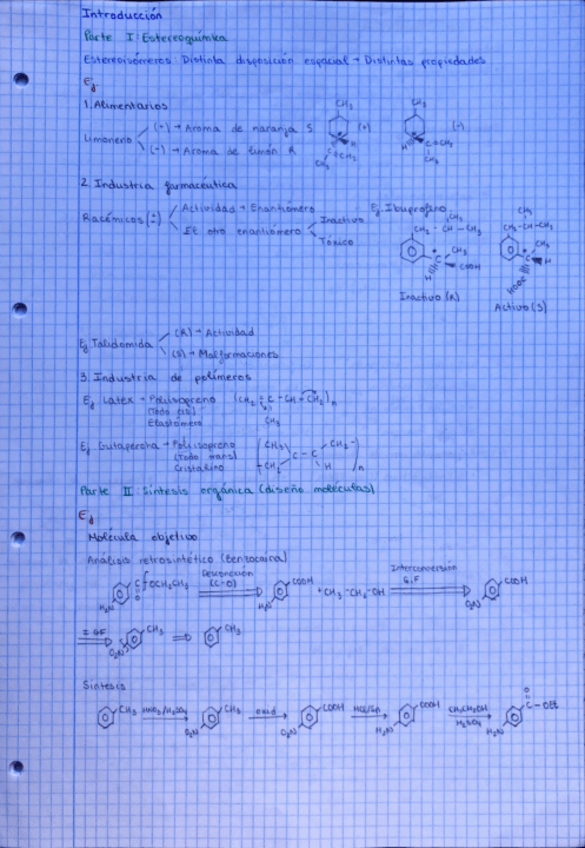 Introducción
Parte I: Estereoquímica
Estereoisómeros: Distinta disposición espacial → Distintas propiedades
Ej.
1. Alimentarios
Limoneno
(+) → Aroma de naranja S
(-) → Aroma de limón R
CH₃
(+)
H
CH₃
(-)
H
CH₃
2. Industria farmacéutica
Racémicos (±)
Actividad → Enantiómero
El otro enantiómero
Inactivo
Tóxico
Ej. Ibuprofeno
CH₃
CH₂ - CH - CH₃
CH₃
COOH
H
Inactivo (R)
CH₃
CH₂-CH-CH₃
CH₃
H
HOOC
Activo (S)
Ej Talidomida
(R) → Actividad
(S) → Malformaciones
3. Industria de polímeros
Ej Latex → Poliisopreno
(Todo cis)
Elastómero
CH₃
Ej Gutapercha → Poliisopreno
(Todo trans)
Cristalino
CH₃
C = C
CH₂-
-CH₂
H
n
Parte II: Síntesis orgánica (diseño moléculas)
Ej
Molécula objetivo
Análisis retrosintético (Benzocaína)
H₂N
C
O
OCH₂CH₃
Desconexión
(C-O)
COOH
H₂N
+ CH₃-CH₂-OH
Interconversión
G.F
COOH
O₂N
I GF
CH₃
O₂N
CH₃
Síntesis
CH₃
HNO₃/H₂SO₄
CH₃
O₂N
oxid
COOH
O₂N
HCl/Sn
COOH
H₂N
CH₃CH₂OH
H₂SO₄
O
C - OEt
H₂N